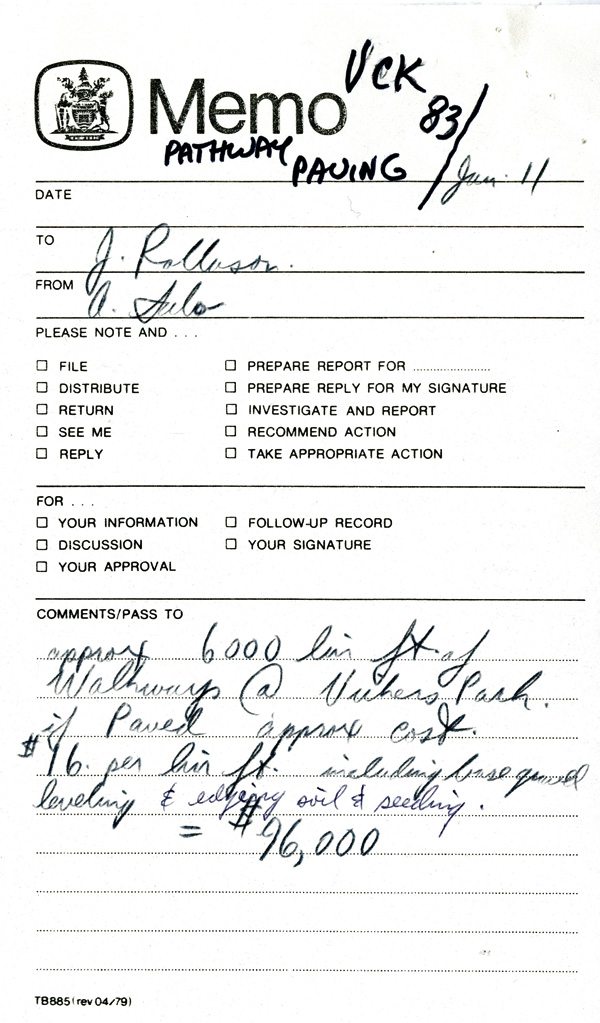 VCK
Memo
83/
PATHWAY
PAVING
Jan. 11
DATE
TO J. Rollason.
FROM A.
PLEASE NOTE AND . . .
FILE
PREPARE REPORT FOR ........................
DISTRIBUTE
PREPARE REPLY FOR MY SIGNATURE
RETURN
INVESTIGATE AND REPORT
SEE ME
RECOMMEND ACTION
REPLY
TAKE APPROPRIATE ACTION
FOR . . .
YOUR INFORMATION
FOLLOW-UP RECORD
DISCUSSION
YOUR SIGNATURE
YOUR APPROVAL
COMMENTS/PASS TO
approx 6000 lin ft. of
Walkways @ Vickers Park.
if Paved approx cost.
$16. per lin ft. including base gravel
leveling & edging soil & seeding.
= $96,000
TB885 (rev 04/79)